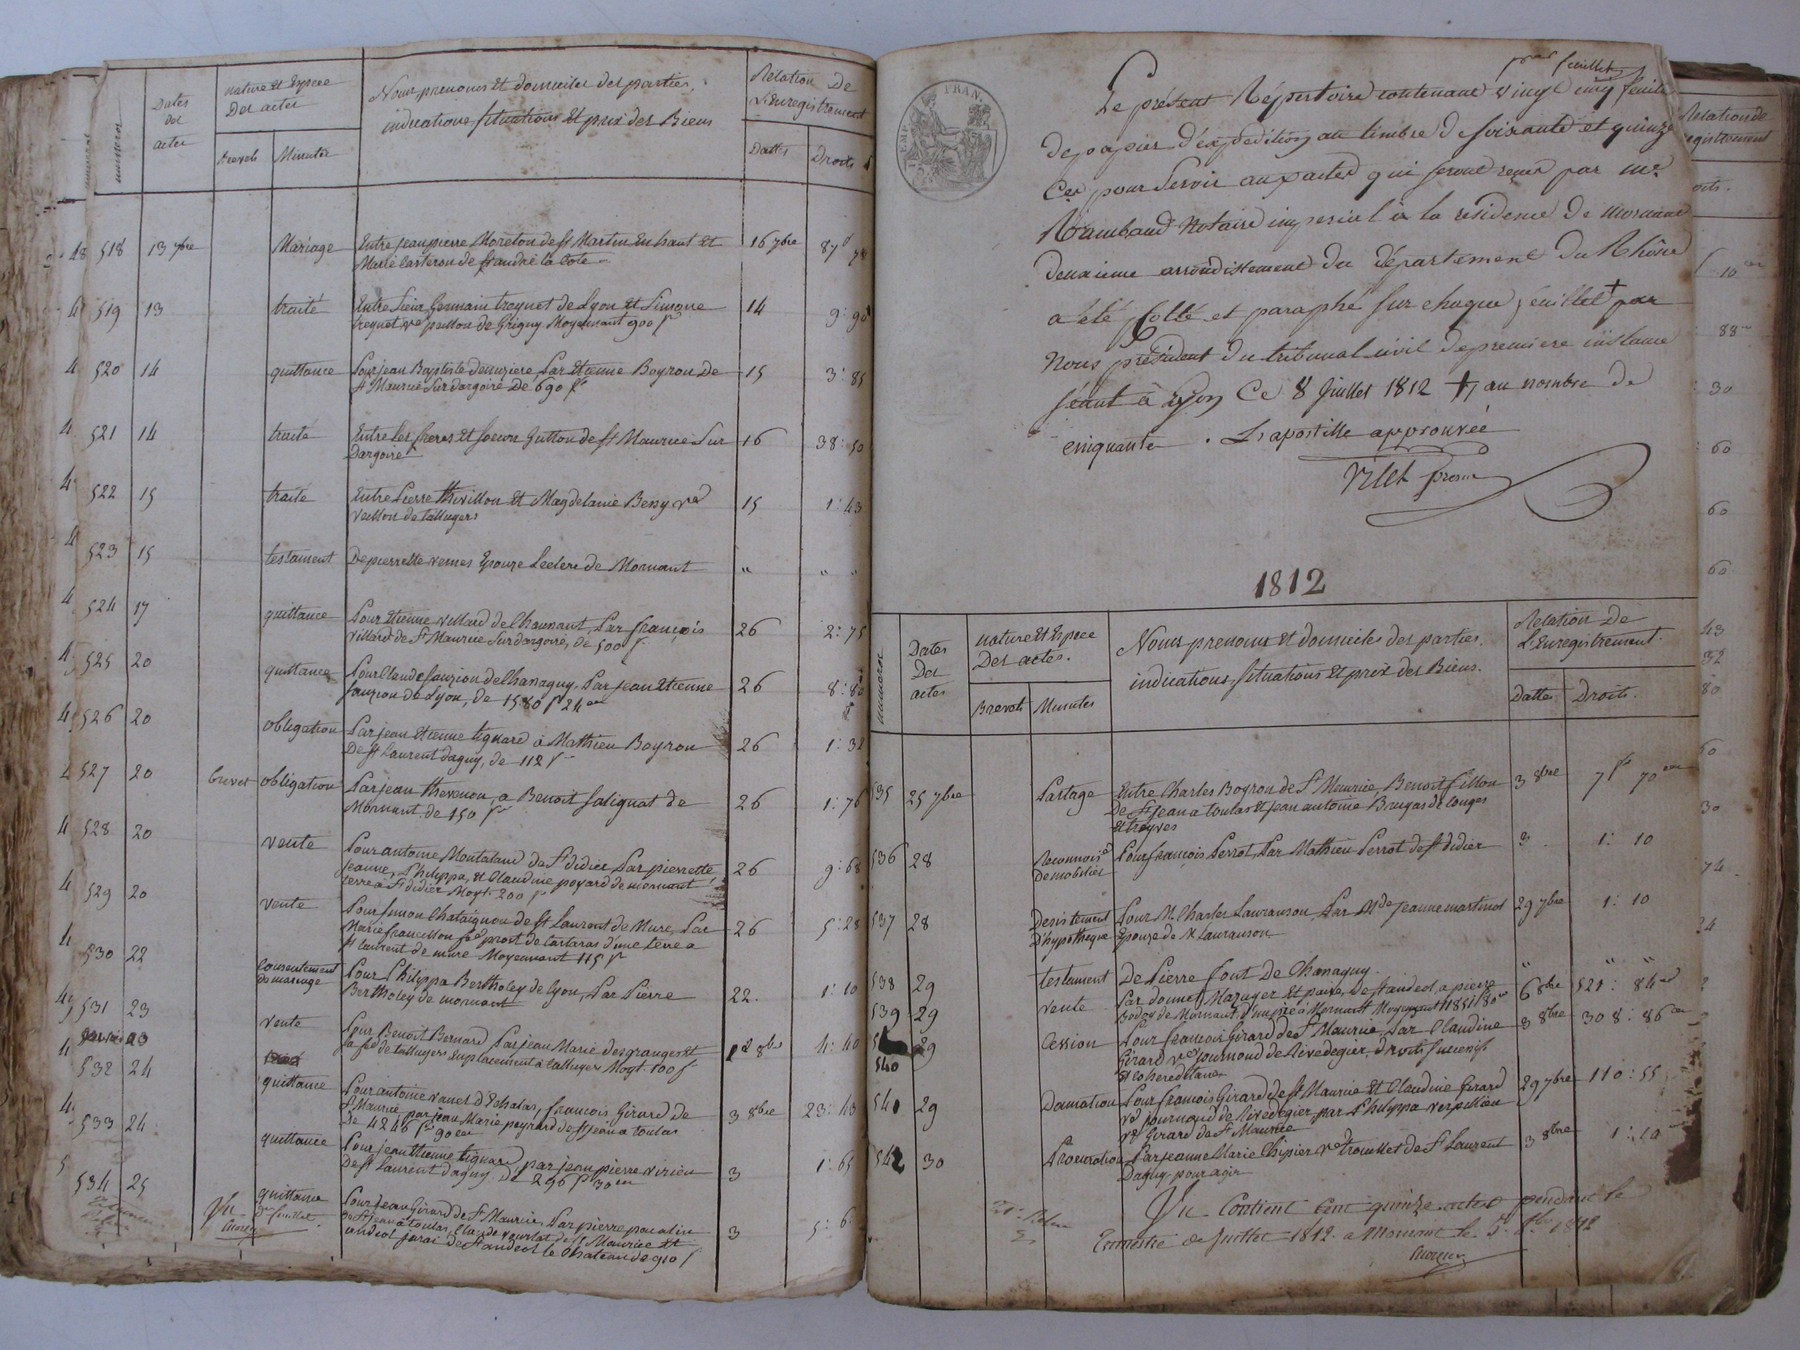 numéros
Dates
des
actes
nature et Espece
Des actes
Brevets Minutes
Noms prenoms et domiciles des parties,
indications, situations et prix des Biens
Relation De
L'Enregistrement
Dattes Droits
518 13 7bre Mariage Entre jean pierre Moreton de st Martin En haut et 16 7bre 87
Marie lasteron de st andré la Cote
519 13 traité Entre Germain troquet de Lyon et Simone 14 9: 90
troquet ve de Grigny Moyennant 900 f
520 14 quittance Pour jean Baptiste Par Etienne Boyron De 15 3: 85
st Maurice Sur dargoire De 690 f
521 14 traité Entre les freres et soeurs Gutton de st Maurice Sur 16 38: 50
Dargoire
522 15 traité Entre Pierre thivillon et Magdelaine Bessy ve 15 1: 43
de talluyers
523 15 testament De pierrette vernes Epouze Leclerc de Mornant " " "
524 17 quittance Pour Etienne villard de Chaunant, Par françois 26 2: 75
villard de St Maurice Sur dargoire, de 500 f
525 20 quittance Pour Claude fauzion de Chanaguy, Par jean Etienne 26 8: 80
fauzion de Lyon, de 1580 f 24 em
526 20 obligation Par jean Etienne tignard à Mathieu Boyron 26 1: 32
De st Laurent dagny, de 112 f
527 20 brevet obligation Par jean thevenon, a Benoit Salignat de 26 1: 76
Mornant, de 150 f
528 20 vente Pour antoine Montaland de St didier Par pierrette 26 9: 68
jeanne, Philippa, et Claudine poyard de mornant
terre a St didier Moyt. 200 f
529 20 vente Pour simon Chataignon de st Laurent de Mure, Par 26 5: 28
Marie francillon de tartaras d'une terre a
st laurent de mure Moyennant 115 f
530 22 Consentement Pour Philippa Bertholey de lyon, Par Pierre 22 1: 10
De mariage Bertholey de mornant
531 23 vente Pour Benoit Bernard Par jean Marie desgranges et 1er 8bre 4: 40
sa fe de talluyers Emplacement a talluyer Moyt 100 f
532 24 quittance Pour antoine vanel d'Echalas, françois Girard de 3 8bre 23: 43
St Maurice, par jean Marie peyrard de st jean a toulas
De 4246 f 90 em
533 24 quittance Pour jean Etienne tignard, par jean pierre virieu 3 1: 65
De st Laurent dagny, de 296 f 30 em
534 25 quittance Pour jean Girard de St Maurice, Par pierre 3 5:
De st jean a toulas, de St Maurice et
andeol De st andeol le Chateau de 910 f
Vu
Le présent Répertoire contenant vingt cinq feuilles
de papier d'expédition au timbre de soixante et quinze
Ces pour servir aux actes qui seront reçus par Me
Rambaud Notaire imperial à la residence de mornant
deuxieme arrondissement du Département du Rhône
a été Cotté et paraphé sur chaque feuillet + par
Nous président du tribunal civil de premiere instance
séant à Lyon Ce 8 juillet 1812 + au nombre de
cinquante. L'apostille approuvée
1812
numéros
Dates
Des
actes
nature et Espece
Des actes.
Brevets Minutes
Noms prenoms et domiciles des parties.
indications, situations et prix des Biens.
Relation De
L'Enregistrement.
Dattes Droits.
535 25 7bre Partage Entre Charles Boyron de St Maurice, Benoit fillon 3 8bre 7 f 70 em
De St jean a toulas et jean antoine Brugas de longes
et treyves
536 28 Reconnoisce Pour françois Perrot, Par Mathieu Perrot de st didier 3 1: 10
De mobilier
537 28 Desistement Pour M. Charles Lauranson, Par Mde jeanne martinot 29 7bre 1: 10
D'hypotheque Epouze de M Lauranson
538 29 testament De Pierre font De Chanaguy. " " "
539 29 vente 6 8bre 521: 84
540 29 Cession Pour francois Girard de St Maurice, Par Claudine 3 8bre 308: 86 em
Girard ve journoud de Rivedegier, droits successifs
541 29 Donnation Pour francois Girard de st Maurice et Claudine Girard 29 7bre 110: 55
ve journoud de Rivedegier par Philippa verpillieu
ve Girard de St Maurice
542 30 Procuration Par jeanne Marie Chipier ve trouillet de St Laurent 3 8bre 1: 10
Dagny pour agir
Vu Contient Cent quinze actes pendant le
trimestre de juillet 1812. a Mornant le 1812
Relation de
10
88
30
60
60
60
43
32
80
60
30
74
24